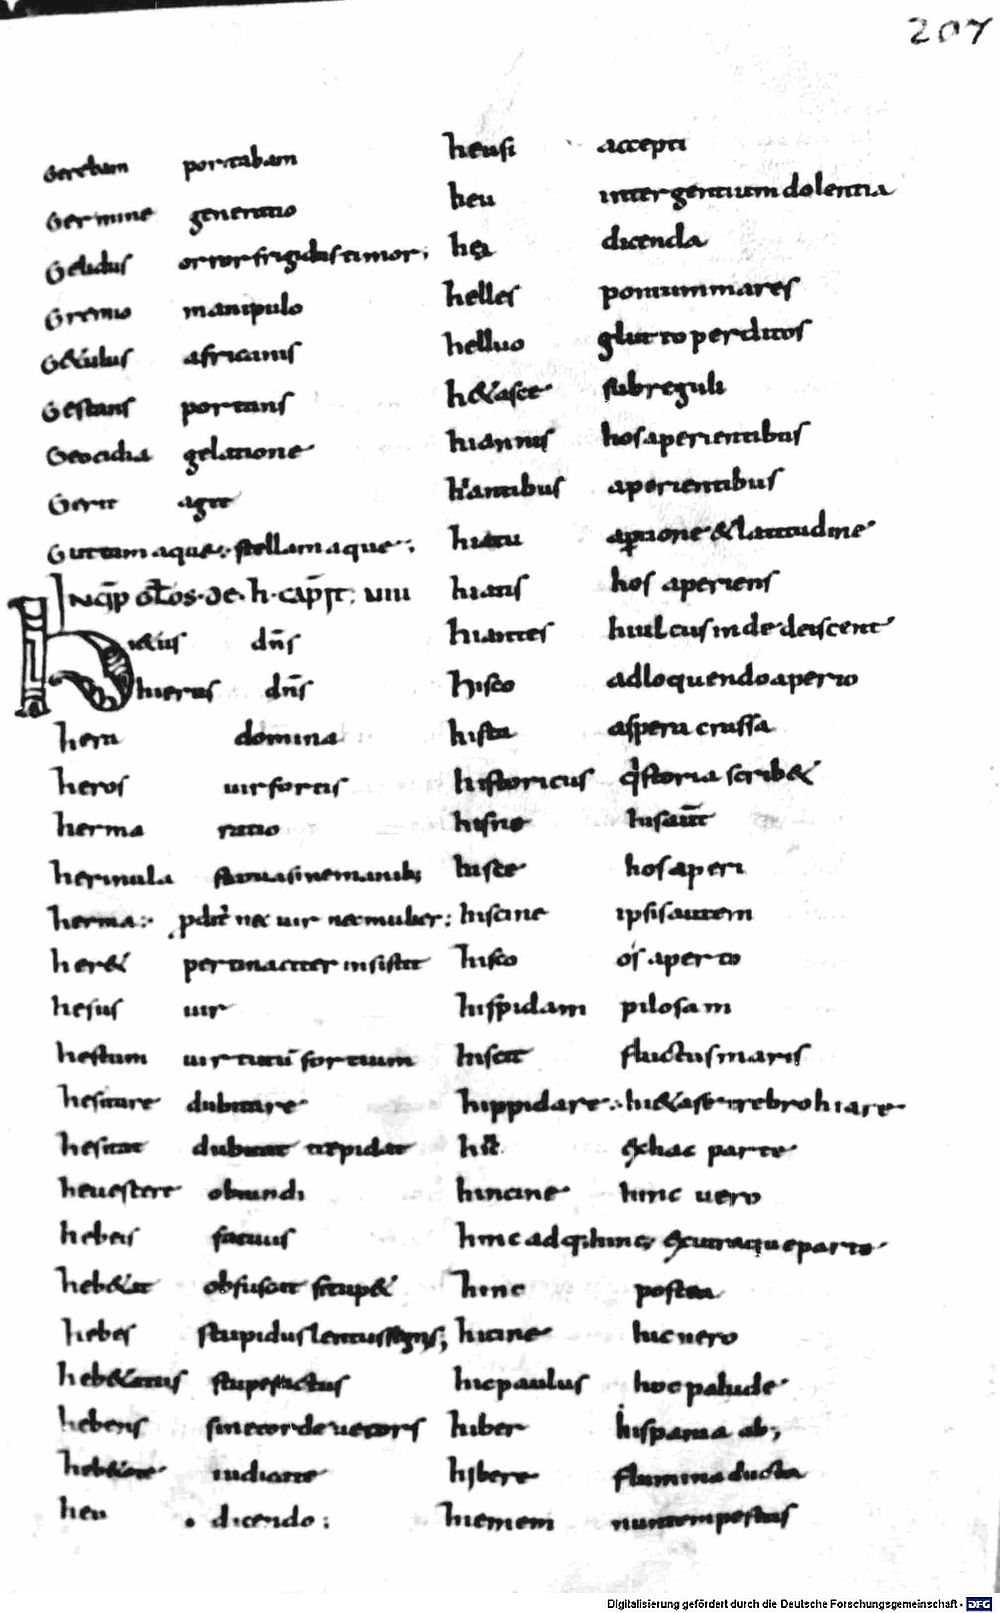 207
Gerebam portabam
Germine generatio
Gelidus orror frigidus timor;
Gremio manipulo
G&ulus africanus
Gestans portans
Geocidia gelatione
Gerit agit
Guttam aquae stellam aque
INCP GLOS DE h CAPIT VIII
dns
hierus dns
hera domina
heros uir fortis
herma ratio
hermula statua sine manib;
herma nec uir nec mulier;
her& pertinaciter insistit
hesus uir
hestum uirtutu fortium
hesitare dubitare
hesitat dubitat trepidat
heuestere obtundi
hebeis fatuus
heb&it obfuscat stup&
hebes stupidus lentus
heb&atus stupefactus
hebens sine corde uecors
iudicare
heu dicendo;
heusi accepti
heu inter gentium dolentia
hei dicenda
helles pontum mares
helluo glutto perditos
h&asce sub reguli
hiannis hos aperientibus
hiantibus aperientibus
hiatu aptione & latitudine
hians hos aperiens
hiantes hiulcus inde deiscent
hisco ad loquendo aperio
hista aspera crassa
historicus qistoria scrib&
hisne his aut
hisce hos aperi
hiscine ipsis autem
hisco os aperto
hispidam pilosam
hiscit fluctus maris
hippidare hiare
exhac parte
hincine hinc uero
hinc adq; hinc ex utraque parte
hinc postea
hicine hic uero
hicpaulus hoc palude
hiber hispania ab;
hibere flumina ducta
hiemem nuntempestas
Digitalisierung gefördert durch die Deutsche Forschungsgemeinschaft - DFG